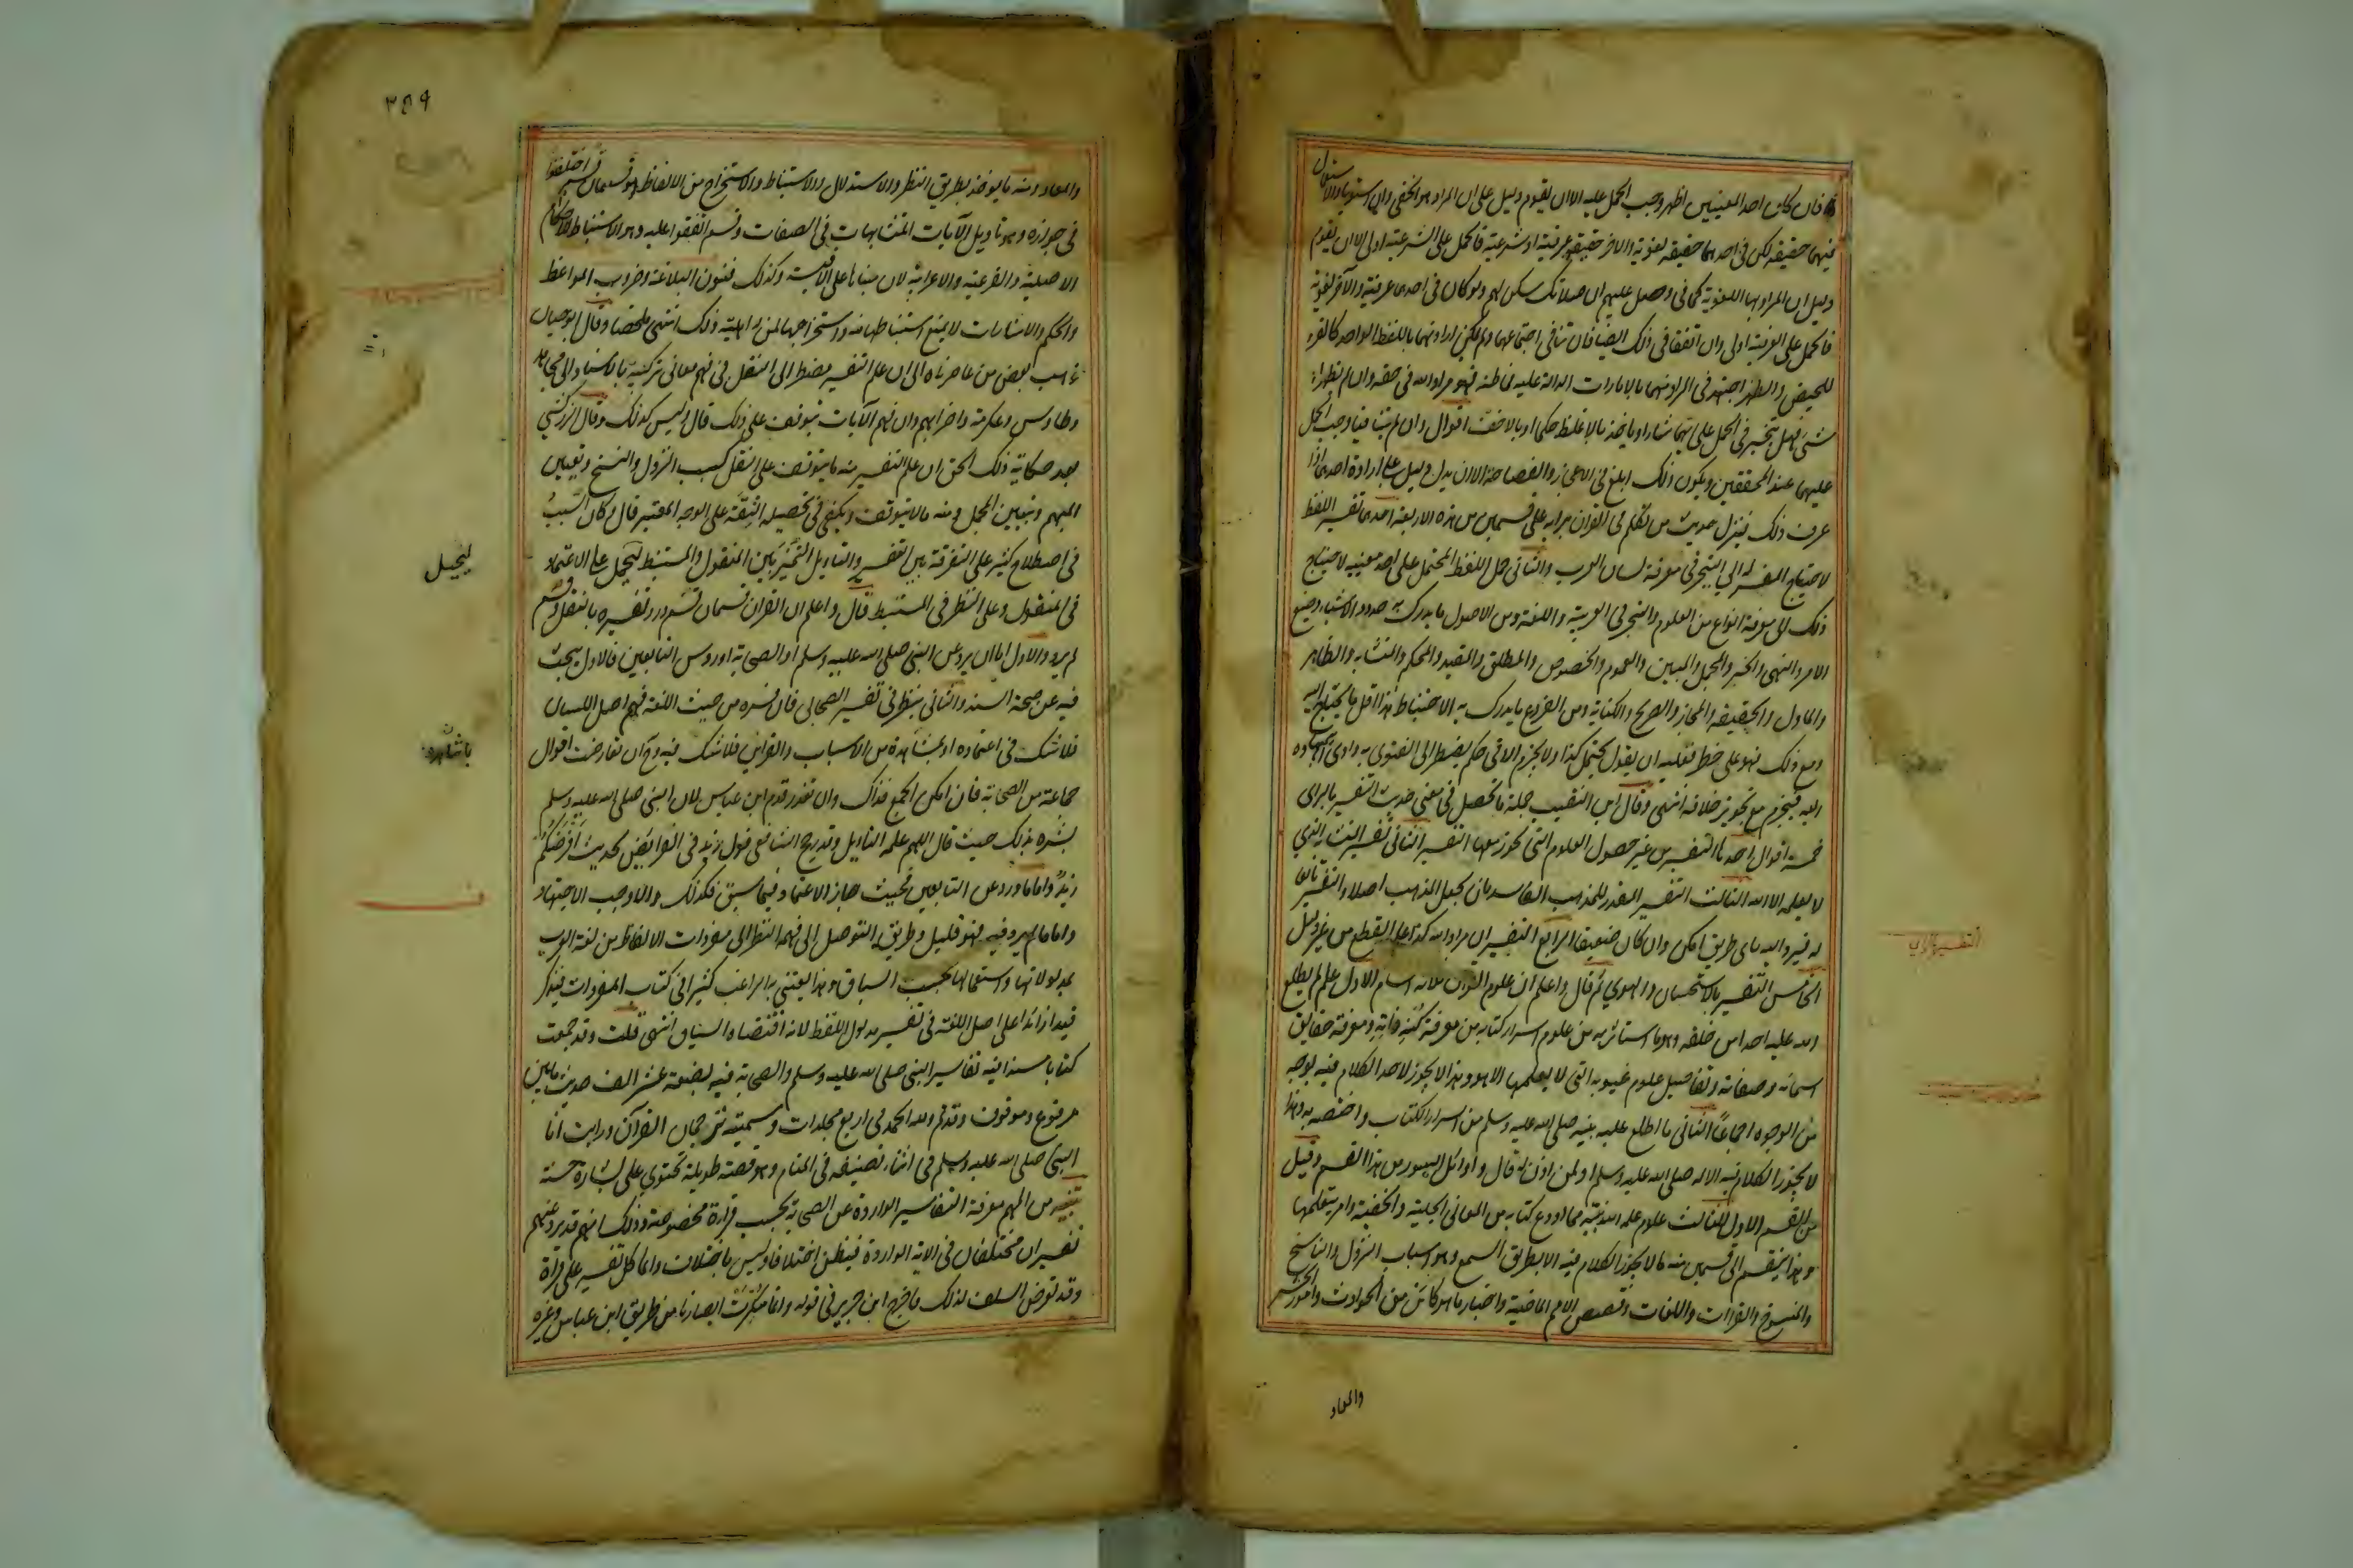 فان كان احد المعنيين اظهر وجب الحمل عليه الا ان يقوم دليل على ان المراد هو الخفي وان استويا والاستعمال
فيهما حقيقة لكن فى احدهما حقيقة لغوية والاخر حقيقة عرفية او شرعية فالحمل على الشرعية اولى الا ان يقوم
دليل ان المراد بها اللغوية كما فى وصل عليهم ان صلاتك سكن لهم ولو كان فى احدى عرفية والآخر لغوية
فالحمل على العرفية اولى وان اتفقا فى ذلك ايضا فان تنافى اجتماعهما ولم يمكن ارادتهما باللفظ الواحد كالقرء
للحيض والطهر اجتهد فى المراد منهما بالامارات الدالة عليه فما ظنه فهو مراد الله فى حقه وان لم يظهر له
شئ فهل يتخير فى الحمل على ايهما شاء او ياخذ بالاغلظ حكما او بالاخف اقوال وان لم يتنافيا وجب الحمل
عليهما عند المحققين ويكون ذلك ابلغ فى الاعجاز والفصاحة الا ان يدل دليل على ارادة احدهما اذا
عرف ذلك فينزل حديث من تكلم فى القران برايه على قسمين من هذه الاربعة احدهما تفسير اللفظ
لاحتياج المفسر له الى التبحر فى معرفة لسان العرب والثانى حمل اللفظ المحتمل على احد معنييه لاحتياج
ذلك الى معرفة انواع من العلوم والتبحر فى العربية واللغة ومن الاصول ما يدرك به حدود الاشياء وصيغ
الامر والنهى والخبر والمجمل والمبين والعموم والخصوص والمطلق والمقيد والمحكم والمتشابه والظاهر
والماول والحقيقة والمجاز والصريح والكناية ومن الفروع ما يدرك به الاستنباط هذا اقل ما يحتاج اليه
ومع ذلك فهو على خطر فعليه ان يقول يحتمل كذا ولا يجزم الا فى حكم يضطر الى الفتوى به وادى اجتهاده
اليه فيجزم مع تجويز خلافه انتهى وقال ابن النقيب جملة ما تحصل فى معنى حديث التفسير بالراى
خمسة اقوال احدها التفسير من غير حصول العلوم التى يجوز معها التفسير الثانى تفسير المتشابه الذي
لا يعلمه الا الله الثالث التفسير المقرر للمذهب الفاسد بان يجعل المذهب اصلا والتفسير تابعا
له فيرد اليه باى طريق امكن وان كان ضعيفا الرابع التفسير ان مراد الله كذا على القطع من غير دليل
الخامس التفسير بالاستحسان والهوي ثم قال واعلم ان علوم القران ثلاثة اقسام الاول علم لم يطلع
الله عليه احدا من خلقه وهو ما استاثر به من علوم اسرار كتابه من معرفة كنه ذاته ومعرفة حقايق
اسمائه وصفاته وتفاصيل علوم غيوبه التى لا يعلمها الا هو وهذا لا يجوز لاحد الكلام فيه بوجه
من الوجوه اجماعا الثانى ما اطلع عليه نبيه صلى الله عليه وسلم من اسرار الكتاب واختصه به وهذا
لا يجوز الكلام فيه الا له صلى الله عليه وسلم او لمن اذن له قال واوائل السور من هذا القسم وقيل
من القسم الاول الثالث علوم علمها الله نبيه مما اودع كتابه من المعانى الجلية والخفية وامر بتعليمها
وهذا ينقسم الى قسمين منه ما لا يجوز الكلام فيه الا بطريق السمع وهو اسباب النزول والناسخ
والمنسوخ والقراات واللغات وقصص الامم الماضية واخبار ما هو كائن من الحوادث وامور الحشر
والمعاد
التفسير بالراي
٣٥٩
والمعاد ومنه ما يوخذ بطريق النظر والاستدلال والاستنباط والاستخراج من الالفاظ وهو قسمان قسم اختلفوا
فى جوازه وهو تاويل الآيات المتشابهات فى الصفات وقسم اتفقوا عليه وهو الاستنباط للاحكام
الاصلية والفرعية والاعرابية لان مبناها على الاقيسة وكذلك فنون البلاغة وضروب المواعظ
والحكم والاشارات لا يمتنع استنباطها منه واستخراجها لمن له اهلية ذلك انتهى ملخصا وقال ابو حيان
ذهب بعض من عاصرناه الى ان علم التفسير مضطر الى النقل فى فهم معانى تركيبه بالاسناد الى مجاهد
وطاوس وعكرمة واضرابهم وان فهم الآيات يتوقف على ذلك قال وليس كذلك وقال الزركشي
بعد حكاية ذلك الحق ان علم التفسير منه ما يتوقف على النقل كسبب النزول والنسخ وتعيين
المبهم وتبيين المجمل ومنه ما لا يتوقف ويكفى فى تحصيله الثقة على الوجه المعتبر قال وكان السبب
فى اصطلاح كثير على التفرقة بين التفسير والتاويل التمييز بين المنقول والمستنبط ليحمل على الاعتماد
فى المنقول وعلى النظر فى المستنبط قال واعلم ان القران قسمان قسم ورد تفسيره بالنقل وقسم
لم يرد والاول اما ان يرد عن النبى صلى الله عليه وسلم او الصحابة او روس التابعين فالاول يبحث
فيه عن صحة السند والثانى ينظر فى تفسير الصحابى فان فسره من حيث اللغة فهم اهل اللسان
فلا شك فى اعتماده او بما شاهده من الاسباب والقراين فلا شك فيه وح ان تعارضت اقوال
جماعة من الصحابة فان امكن الجمع فذاك وان تعذر قدم ابن عباس لان النبى صلى الله عليه وسلم
بشره بذلك حيث قال اللهم علمه التاويل وقد رجح الشافعى قول زيد فى الفرائض لحديث افرضكم
زيد واما ما ورد عن التابعين فحيث جاز الاعتماد فيما سبق فكذلك والا وجب الاجتهاد
واما ما لم يرد فيه فهو قليل وطريق التوصل الى فهمه النظر الى مفردات الالفاظ من لغة العرب
ومدلولاتها واستعمالها بحسب السياق وهذا يعتنى به الراغب كثيرا فى كتاب المفردات فيذكر
قيدا زائدا على اهل اللغة فى تفسير مدلول اللفظ لانه اقتضاه السياق انتهى قلت وقد جمعت
كتابا مسندا فيه تفاسير النبى صلى الله عليه وسلم والصحابة فيه بضعة عشر الف حديث ما بين
مرفوع وموقوف وقد تم ولله الحمد فى اربع مجلدات وسميته ترجمان القرآن ورايت انا
النبي صلى الله عليه وسلم فى اثناء تصنيفه فى المنام وهو قصة طويلة تحتوي على بشارة حسنة
تنبيه من المهم معرفة التفاسير الواردة عن الصحابة بحسب قراءة مخصوصة وذلك انهم قد يرد عنهم
تفسيران مختلفان فى الاية الواردة فيظن اختلافا وليس باختلاف وانما كل تفسير على قراة
وقد تعرض السلف لذلك فاخرج ابن جرير فى قوله وانما سكرت ابصارنا من طريق ابن عباس وغيره